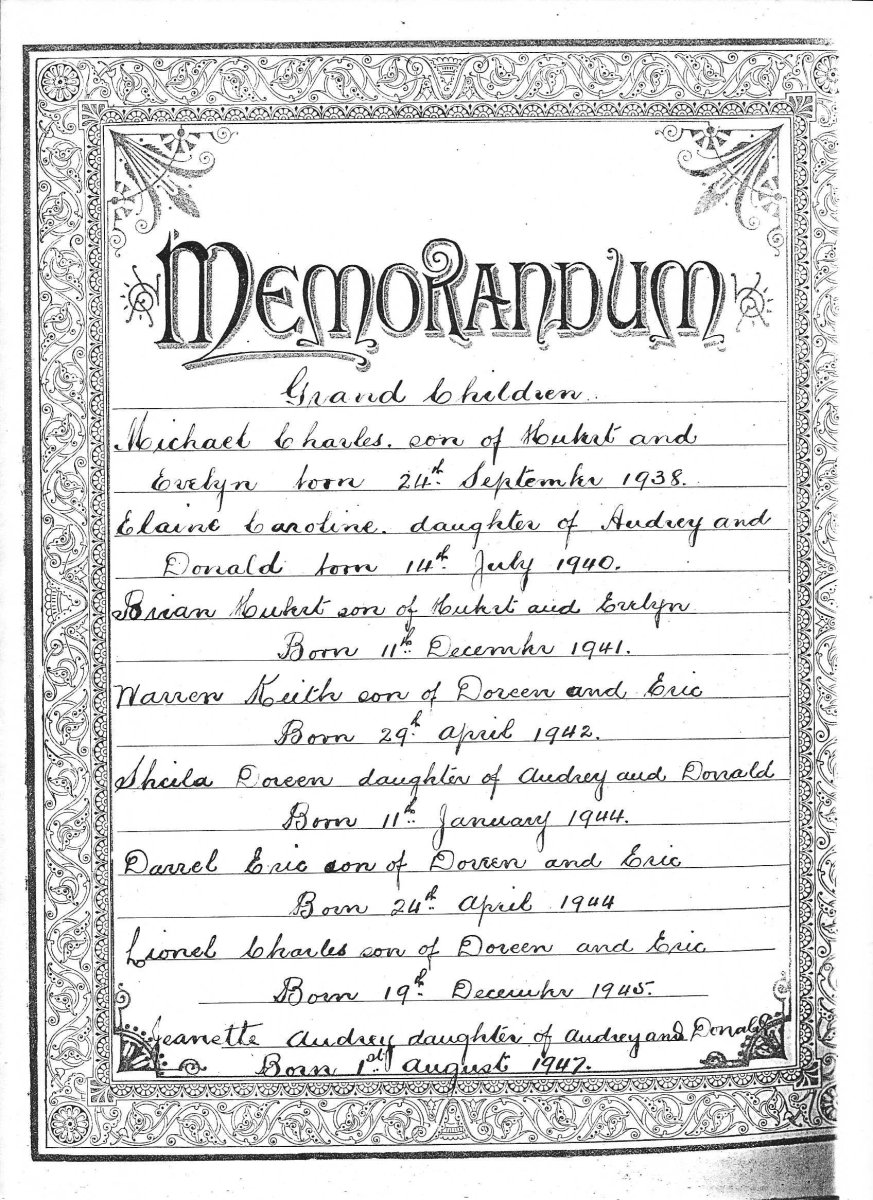 MEMORANDUM
Grand Children
Michael Charles. son of Hubert and
Evelyn born 24th September 1938.
Elaine Caroline. daughter of Audrey and
Donald born 14th July 1940.
Brian Hubert son of Hubert and Evelyn
Born 11th December 1941.
Warren Keith son of Doreen and Eric
Born 29th April 1942.
Sheila Doreen daughter of Audrey and Donald
Born 11th January 1944.
Darrel Eric son of Doreen and Eric
Born 24th April 1944
Lionel Charles son of Doreen and Eric
Born 19th December 1945.
Jeanette Audrey daughter of Audrey and Donald
Born 1st August 1947.